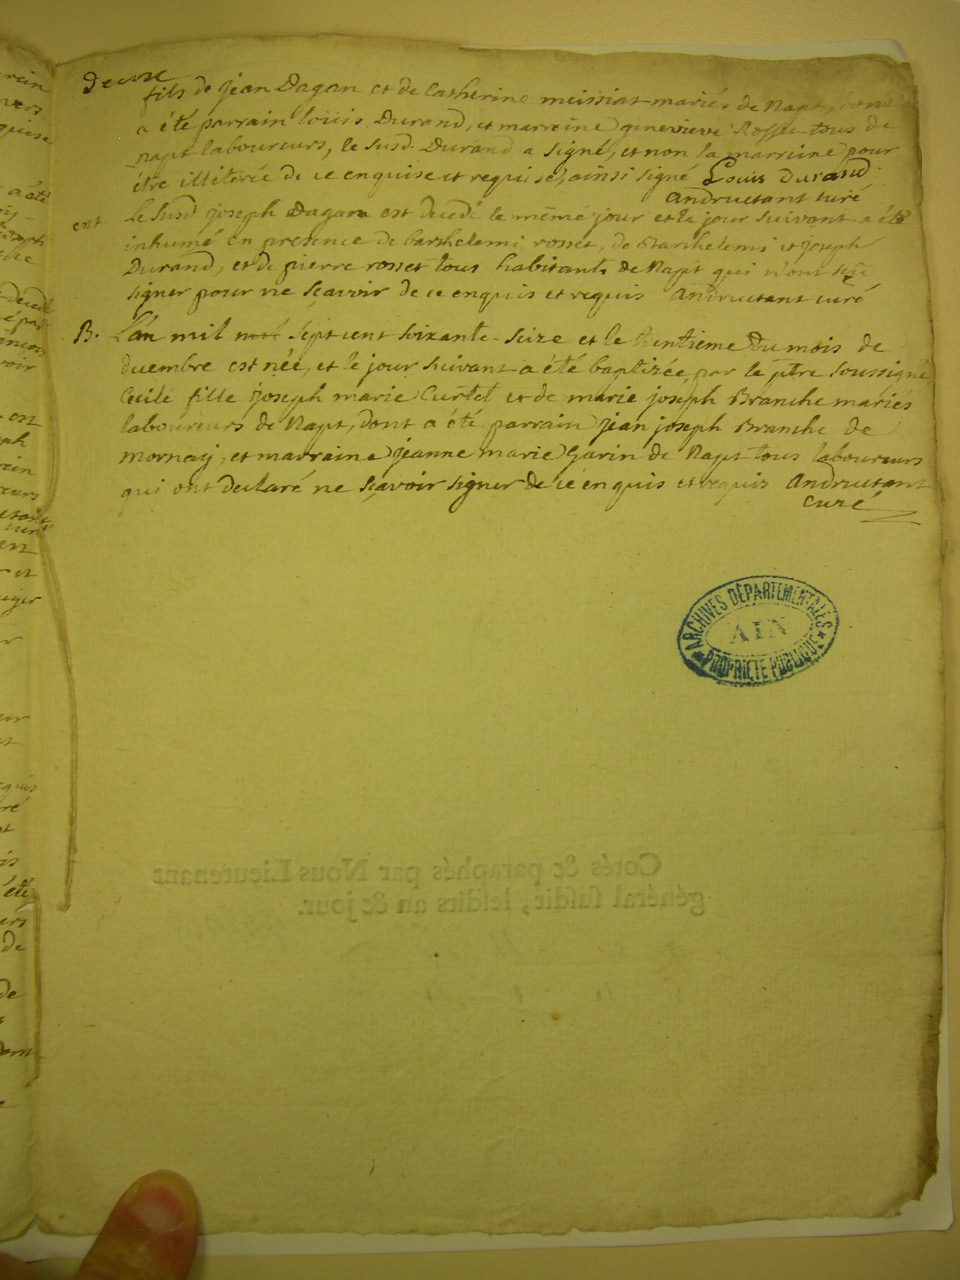 fils de jean Dagan et de Catherine meissiat mariés de Napt, dont
a été parrain louis Durand, et marreine genevieve Rosset tous de
napt laboureurs, le susd. Durand a signé, et non la marreine pour
être illiterée de ce enquise et requise, ainsi signé Louis Durand
Andruetant curé
Le susd joseph Dagan est decedé le même jour et le jour suivant a été
inhumé en presence de Barthelemi rosset, de Barthelemi et joseph
Durand, et de pierre rosset tous habitants de Napt qui n'ont
signer pour ne sçavoir de ce enquis et requis Andruetant curé
B. L'an mil sept cent soixante-seize et le trentieme du mois de
decembre est née, et le jour suivant a été baptizée par le ptre soussigné
Cecile fille joseph marie Curtet et de marie joseph Branche mariés
laboureurs de Napt, dont a été parrain jean joseph Branche de
mornay, et marraine jeanne marie Garin de Napt tous laboureurs
qui ont declaré ne sçavoir signer de ce enquis et requis Andruetant
curé
ARCHIVES DÉPARTEMENTALES
AIN
PROPRIÉTÉ PUBLIQUE
Cotés & paraphés par Nous Lieutenant
général susdit, lesdits an & jour.